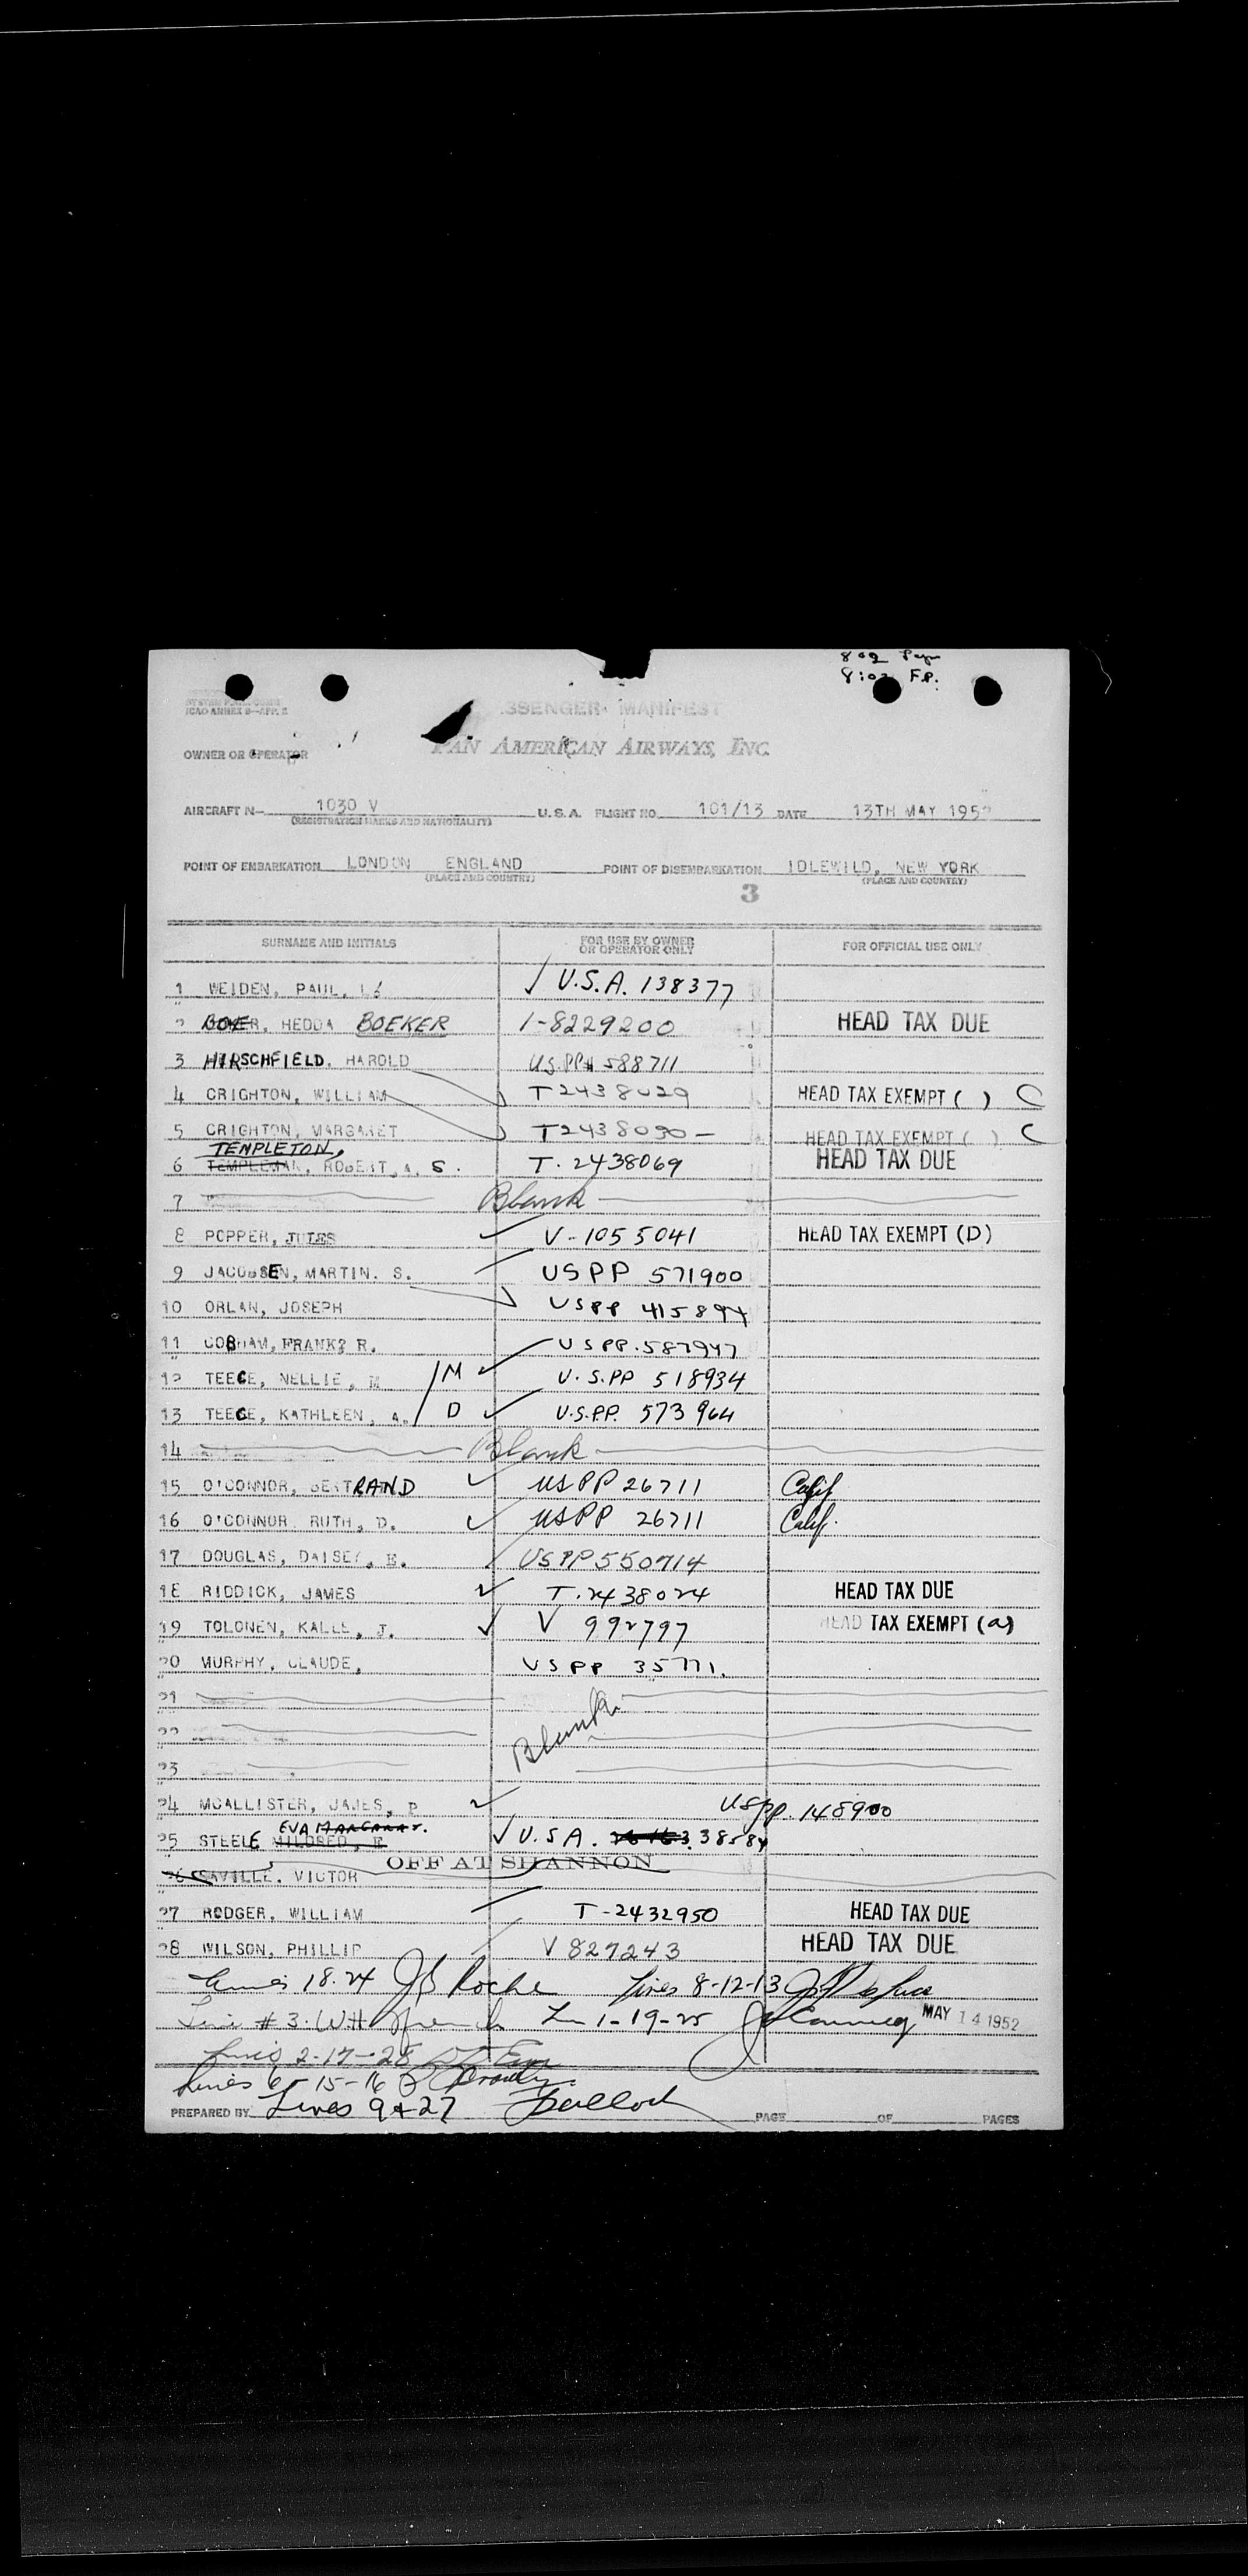 8:02 F.P.
ICAO ANNEX 9—APP. 2
PASSENGER MANIFEST
OWNER OR OPERATOR PAN AMERICAN AIRWAYS, INC.
AIRCRAFT N— 1030 V U.S.A. FLIGHT NO. 101/13 DATE 13TH MAY 1952
(REGISTRATION MARKS AND NATIONALITY)
POINT OF EMBARKATION LONDON ENGLAND POINT OF DISEMBARKATION IDLEWILD, NEW YORK
(PLACE AND COUNTRY) (PLACE AND COUNTRY)
3
SURNAME AND INITIALS FOR USE BY OWNER OR OPERATOR ONLY FOR OFFICIAL USE ONLY
1 WEIDEN, PAUL, L. ✓ U.S.A. 138377
2 BOYER, HEDDA BOEKER 1-8229200 HEAD TAX DUE
3 HIRSCHFIELD, HAROLD US.PP# 588711
4 CRIGHTON, WILLIAM T2438029 HEAD TAX EXEMPT ( ) C
5 CRIGHTON, MARGARET T2438030 — HEAD TAX EXEMPT ( ) C
TEMPLETON,
6 TEMPLEMAN, ROBERT, A. S. T. 2438069 HEAD TAX DUE
7 Blank
8 POPPER, JULES V-1055041 HEAD TAX EXEMPT (D)
9 JACOBSEN, MARTIN. S. USPP 571900
10 ORLAN, JOSEPH USPP 415894
11 COBHAM, FRANK R. USPP. 587947
12 TEECE, NELLIE, M M ✓ U.S.PP 518934
13 TEECE, KATHLEEN, A. D ✓ U.S.P.P. 573964
14 Blank
15 O'CONNOR, BERTRAND ✓ USPP 26711 Calif
16 O'CONNOR, RUTH, D. ✓ USPP 26711 Calif.
17 DOUGLAS, DAISEY, E. USPP 550714
18 RIDDICK, JAMES ✓ T. 2438024 HEAD TAX DUE
19 TOLONEN, KALLE, J. ✓ V 992797 HEAD TAX EXEMPT (a)
20 MURPHY, CLAUDE, USPP 35771.
21
22 Blank
23
24 MCALLISTER, JAMES, P ✓ USPP. 148900
EVA MARGARET.
25 STEELE MILDRED, E ✓ U.S A. 38584
OFF AT SHANNON
26 SAVILLE, VICTOR
27 RODGER, WILLIAM T-2432950 HEAD TAX DUE
28 WILSON, PHILLIP V 827243 HEAD TAX DUE
Lines 18.24 JB Roche Lines 8-12-13
Line #3. WH French Ln 1-19-25 MAY 14 1952
Lines 2-17-28
Lines 6-15-16
PREPARED BY Lines 9+27 PAGE OF PAGES